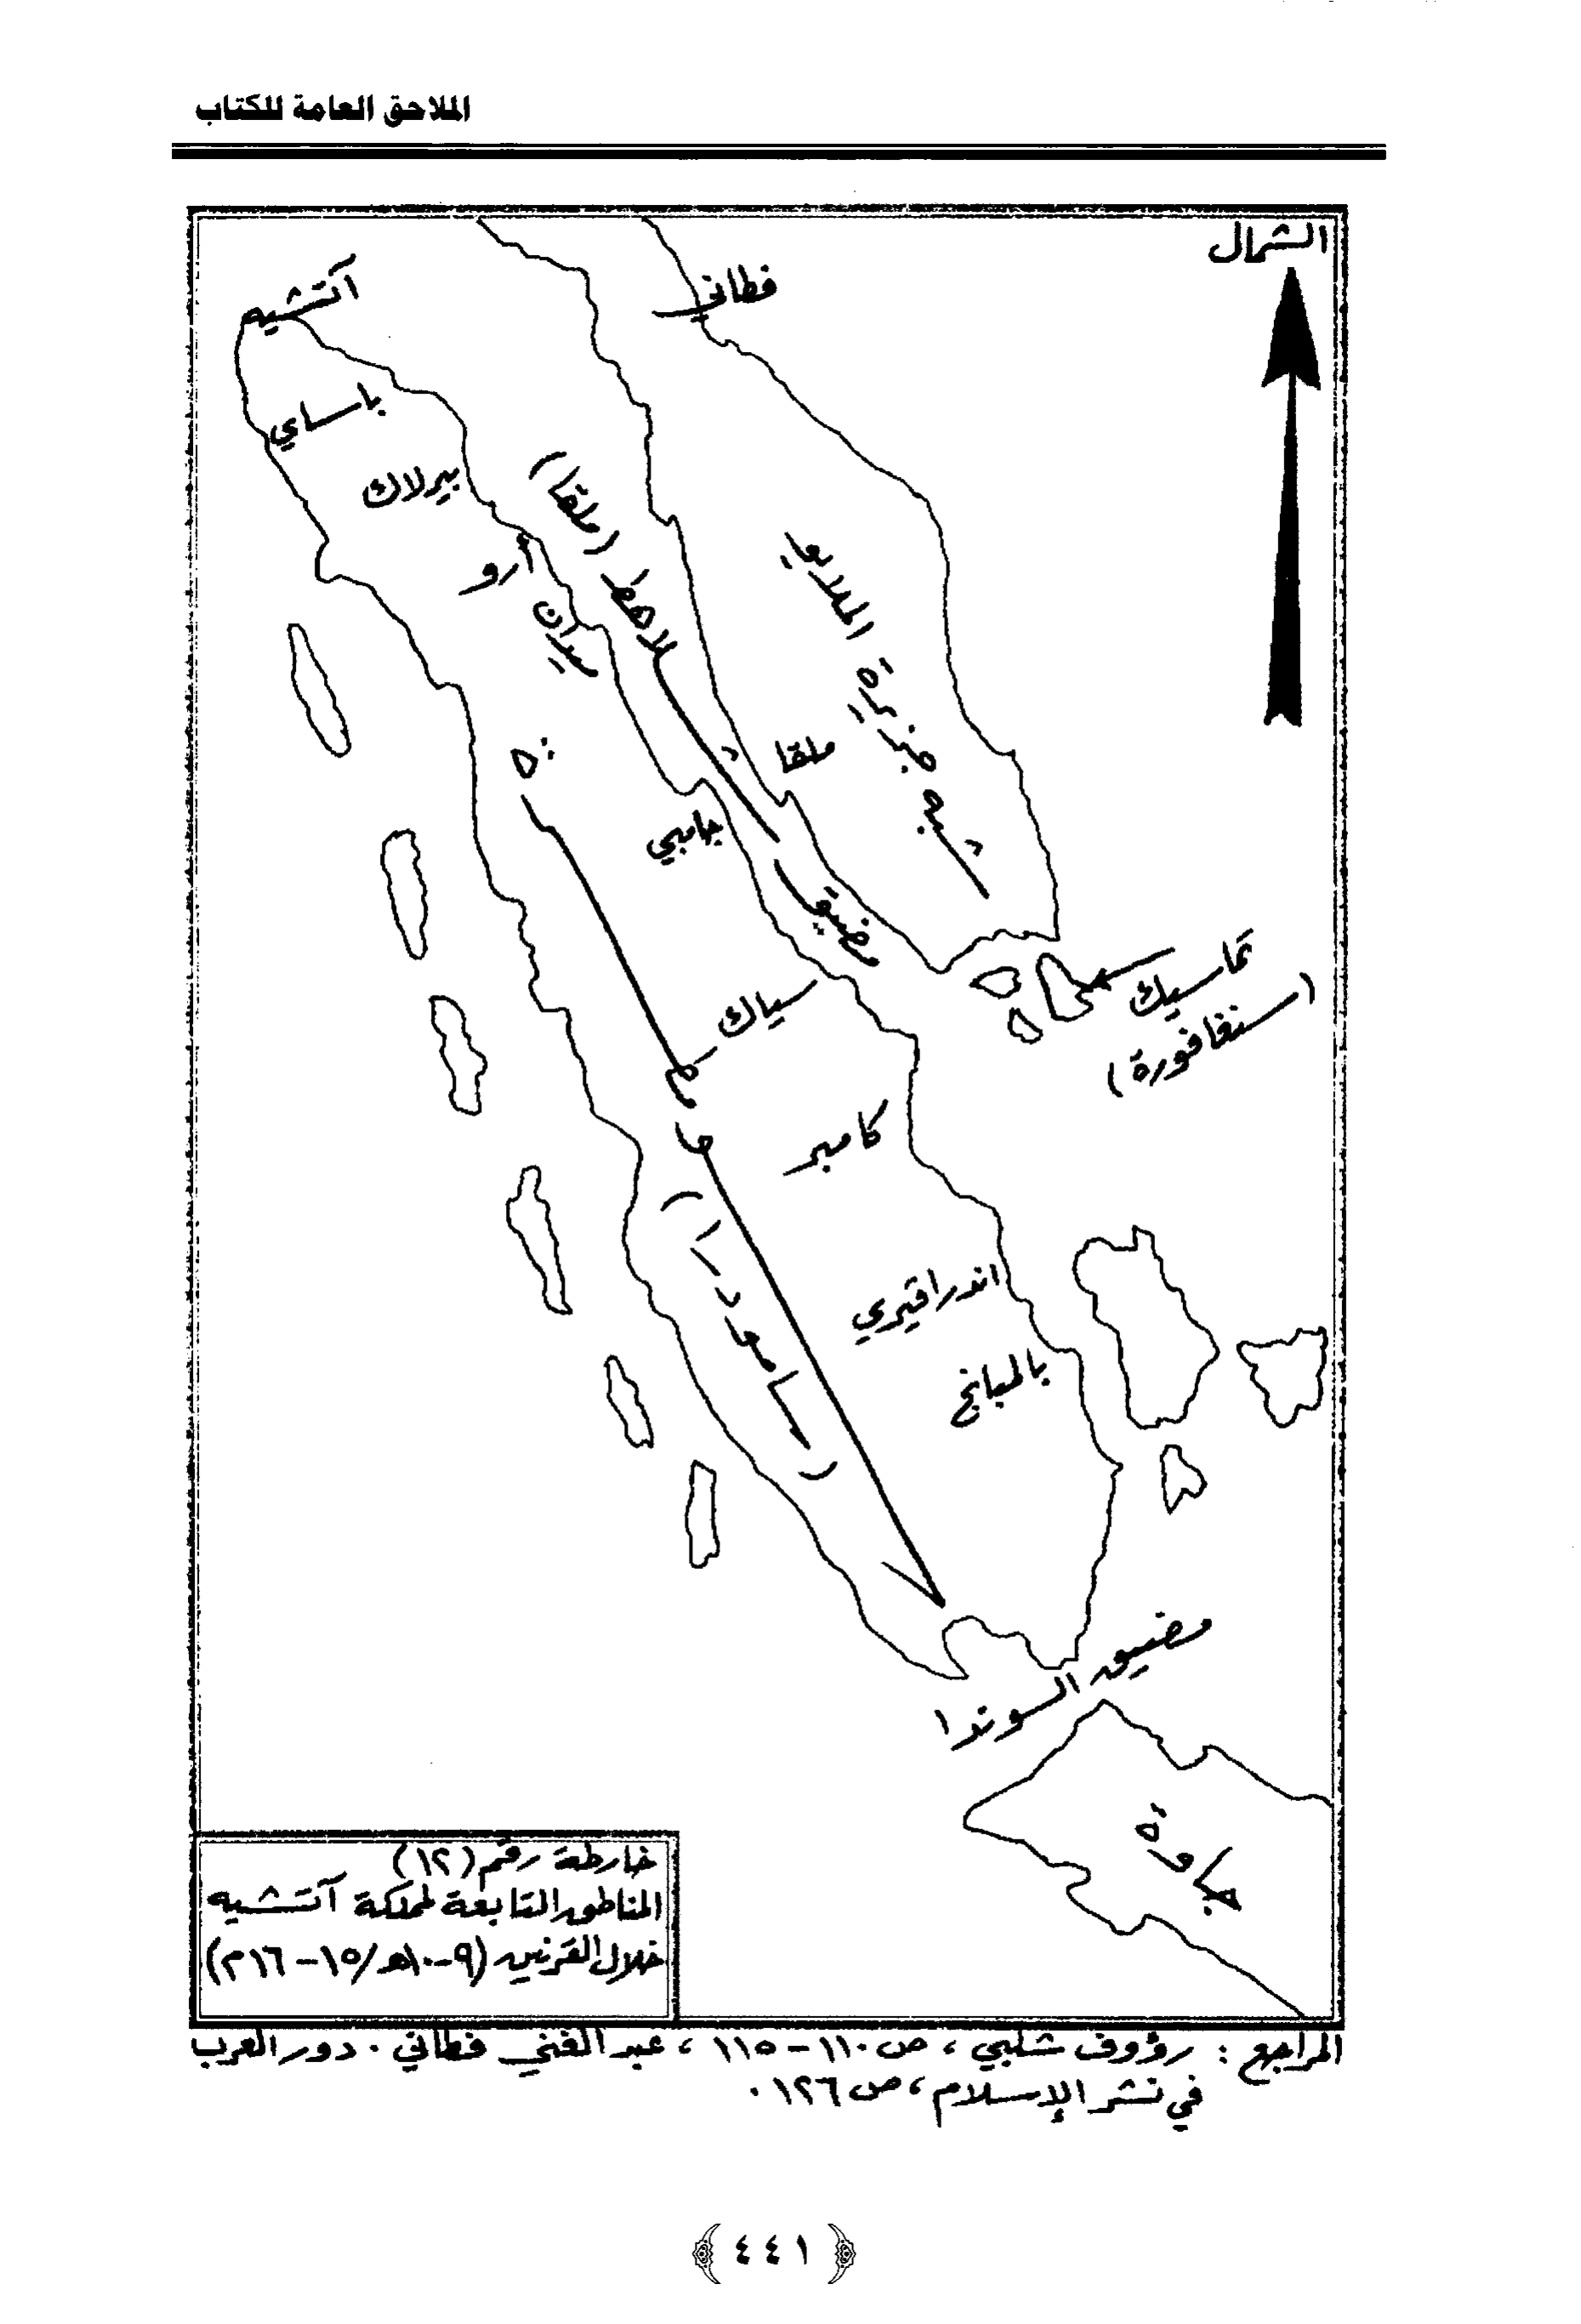 الملاحق العامة للكتاب
الشمال
فطاني
آتشيه
باساي
بيرلاك
أرو
ميدان
مضيق شلاهط (ملقا)
شبه جزيرة الملايو
ملقا
جامبي
تماسيك
(سنغافورة)
سياك
كامبر
(سامودرا)
اندراقيري
بالمبانج
مضيق السوندا
جاوة
خارطة رقم (١٢)
المناطق التابعة لمملكة آتشيه
خلال القرنين (٩-١٠هـ/١٥-١٦م)
المراجع : رؤوف شلبي ، ص ١١٠-١١٥ ، عبد الغني فطاني . دور العرب
في نشر الإسلام ، ص ١٢٦ .
٤٤١